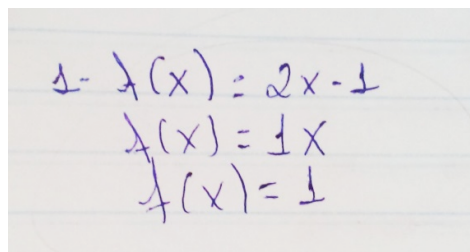 1- f(x) = 2x-1
f(x) = 1x
f(x) = 1